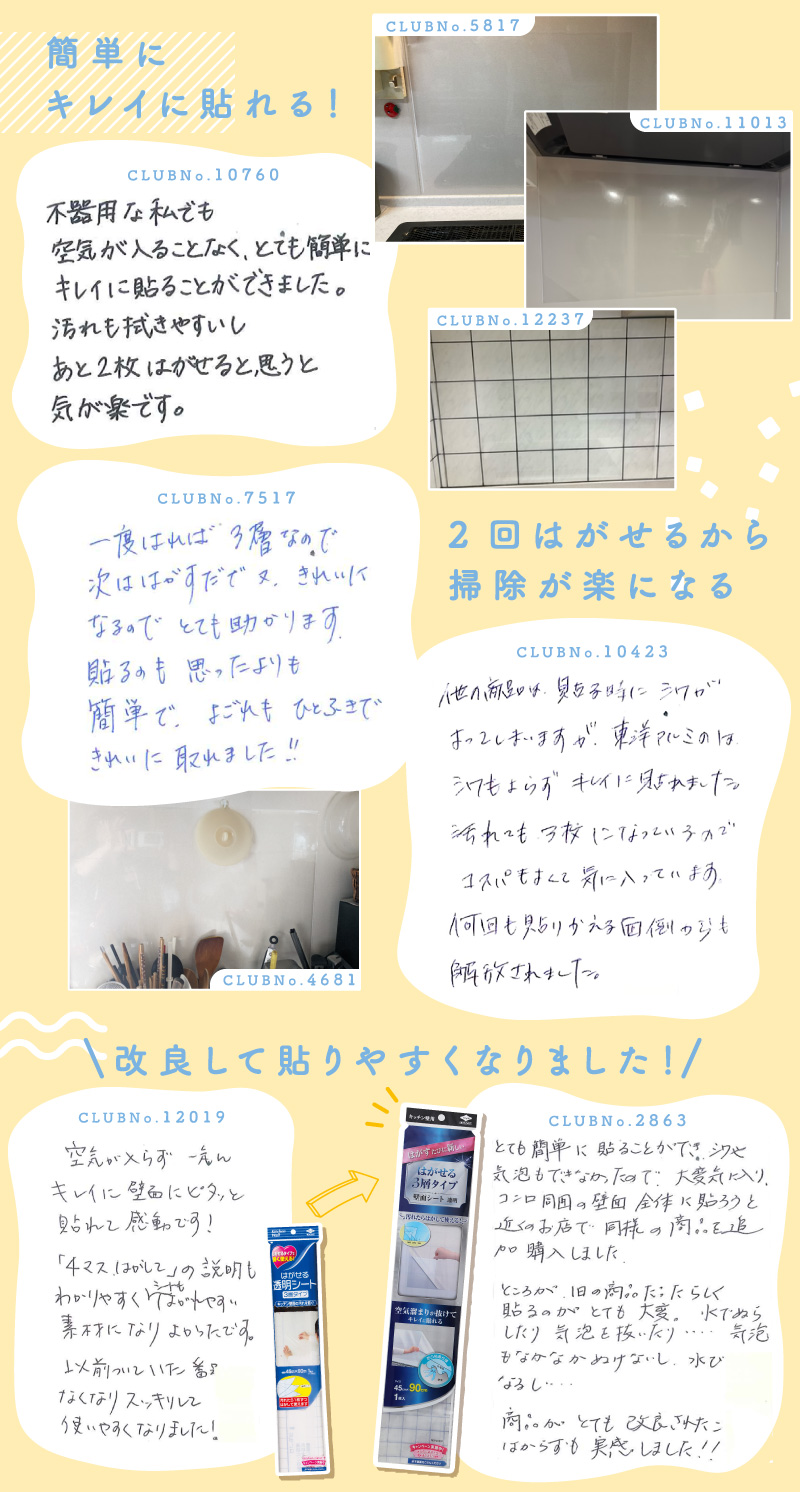 簡単に
キレイに貼れる！
CLUBNo.5817
CLUBNo.11013
CLUBNo.12237
CLUBNo.10760
不器用な私でも
空気が入ることなく、とても簡単に
キレイに貼ることができました。
汚れも拭きやすいし
あと2枚はがせると思うと
気が楽です。
CLUBNo.7517
一度はれば3層なので
次ははがすだで又、きれいに
なるのでとても助かります。
貼るのも思ったよりも
簡単で、よごれもひとふきで
きれいに取れました!!
2回はがせるから
掃除が楽になる
CLUBNo.10423
他の商品は、貼る時にシワが
よってしまいますが、東洋アルミのは
シワもよらずキレイに貼れました。
汚れても3枚になっているので
コスパもよくて気に入っています。
何回も貼りかえる面倒からも
解放されました。
CLUBNo.4681
\改良して貼りやすくなりました！/
CLUBNo.12019
空気が入らず
キレイに壁面にピタッと
貼れて感動です！
「4マスはがして」の説明も
わかりやすくシートもはがれやすい
素材になりよかったです。
以前ついていた番号
なくなりスッキリして
使いやすくなりました！
はがせる
透明シート
3層タイプ
キッチン壁用
はがすたびに新しい
はがせる
3層タイプ
壁面シート 透明
汚れたらはがして使える！
空気溜まりが抜けて
キレイに貼れる
45cm×90cm
1枚入
CLUBNo.2863
とても簡単に貼ることができ、シワや
気泡もできなかったので、大変気に入り、
コンロ周囲の壁面全体に貼ろうと
近くのお店で同様の商品を追
加購入しました。
ところが、旧の商品だったらしく
貼るのがとても大変。水でぬら
したり気泡を抜いたり‥‥気泡
もなかなかぬけないし、水び
なるし‥‥
商品がとても改良されたこ
はからずも実感しました!!